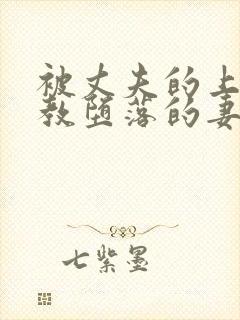 被丈夫的上
教堕落的妻
七紫墨